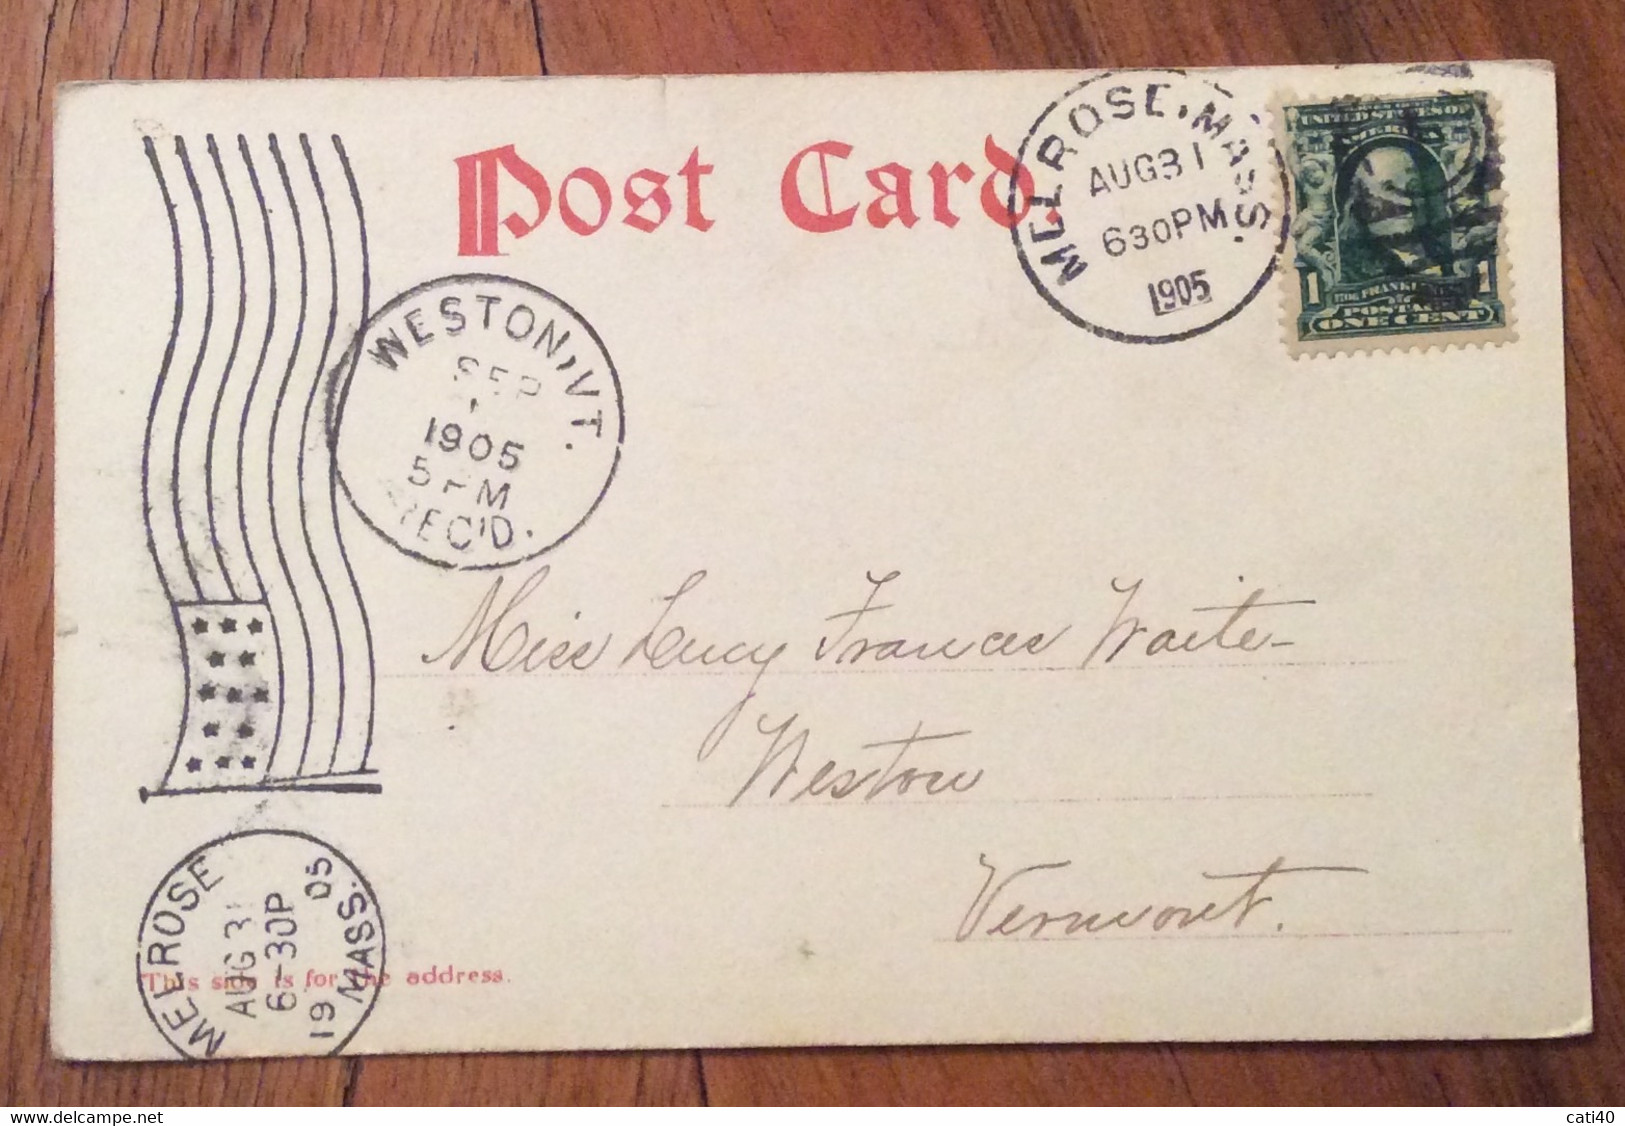 Post Card.
MELROSE, MASS.
AUG 31
630PM
1905
UNITED STATES OF
AMERICA
1 1
POSTAGE
ONE CENT
WESTON, VT.
SEP
1
1905
5 PM
REC'D.
Miss Lucy Frances Waite
Weston
Vermont.
MELROSE MASS.
AUG 31
6-30P
1905
This side is for the address.
delcampe.net
cati40